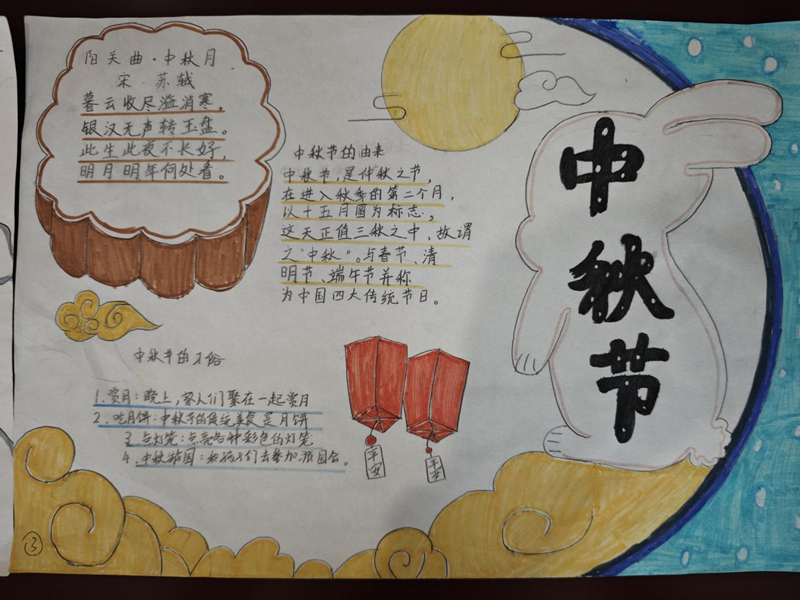 阳关曲·中秋月
宋·苏轼
暮云收尽溢清寒,
银汉无声转玉盘。
此生此夜不长好,
明月明年何处看。
中秋节的由来
中秋节,是仲秋之节,
在进入秋季的第二个月,
以十五月圆为标志,
这天正值三秋之中,故谓
之“中秋”。与春节、清
明节、端午节并称
为中国四大传统节日。
中秋节的习俗
1.赏月:晚上,家人们聚在一起赏月
2.吃月饼:中秋节的传统美食是月饼
3.点灯笼:点亮各种彩色的灯笼
4.中秋游园:和孩子们去参加游园会。
平安
平安
中秋节
3